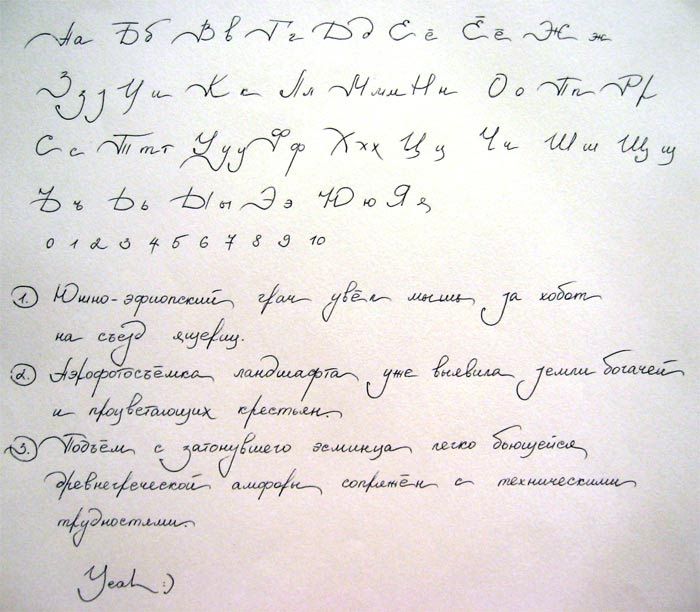 Аа Бб Вв Гг Дд Её Ёё Жж
Ззз Ии Кк Лл Ммм Нн Оо Пп Рр
Сс Ттт Ууу Фф Ххх Цц Чч Шш Щщ
Ъъ Ьь Ыы Ээ Юю Яя
0 1 2 3 4 5 6 7 8 9 10
1. Южно-эфиопский грач увёл мышь за хобот
на съезд ящериц.
2. Аэрофотосъёмка ландшафта уже выявила земли богачей
и процветающих крестьян.
3. Подъём с затонувшего эсминца легко бьющейся
древнегреческой амфоры сопряжён с техническими
трудностями.
Yeah :)